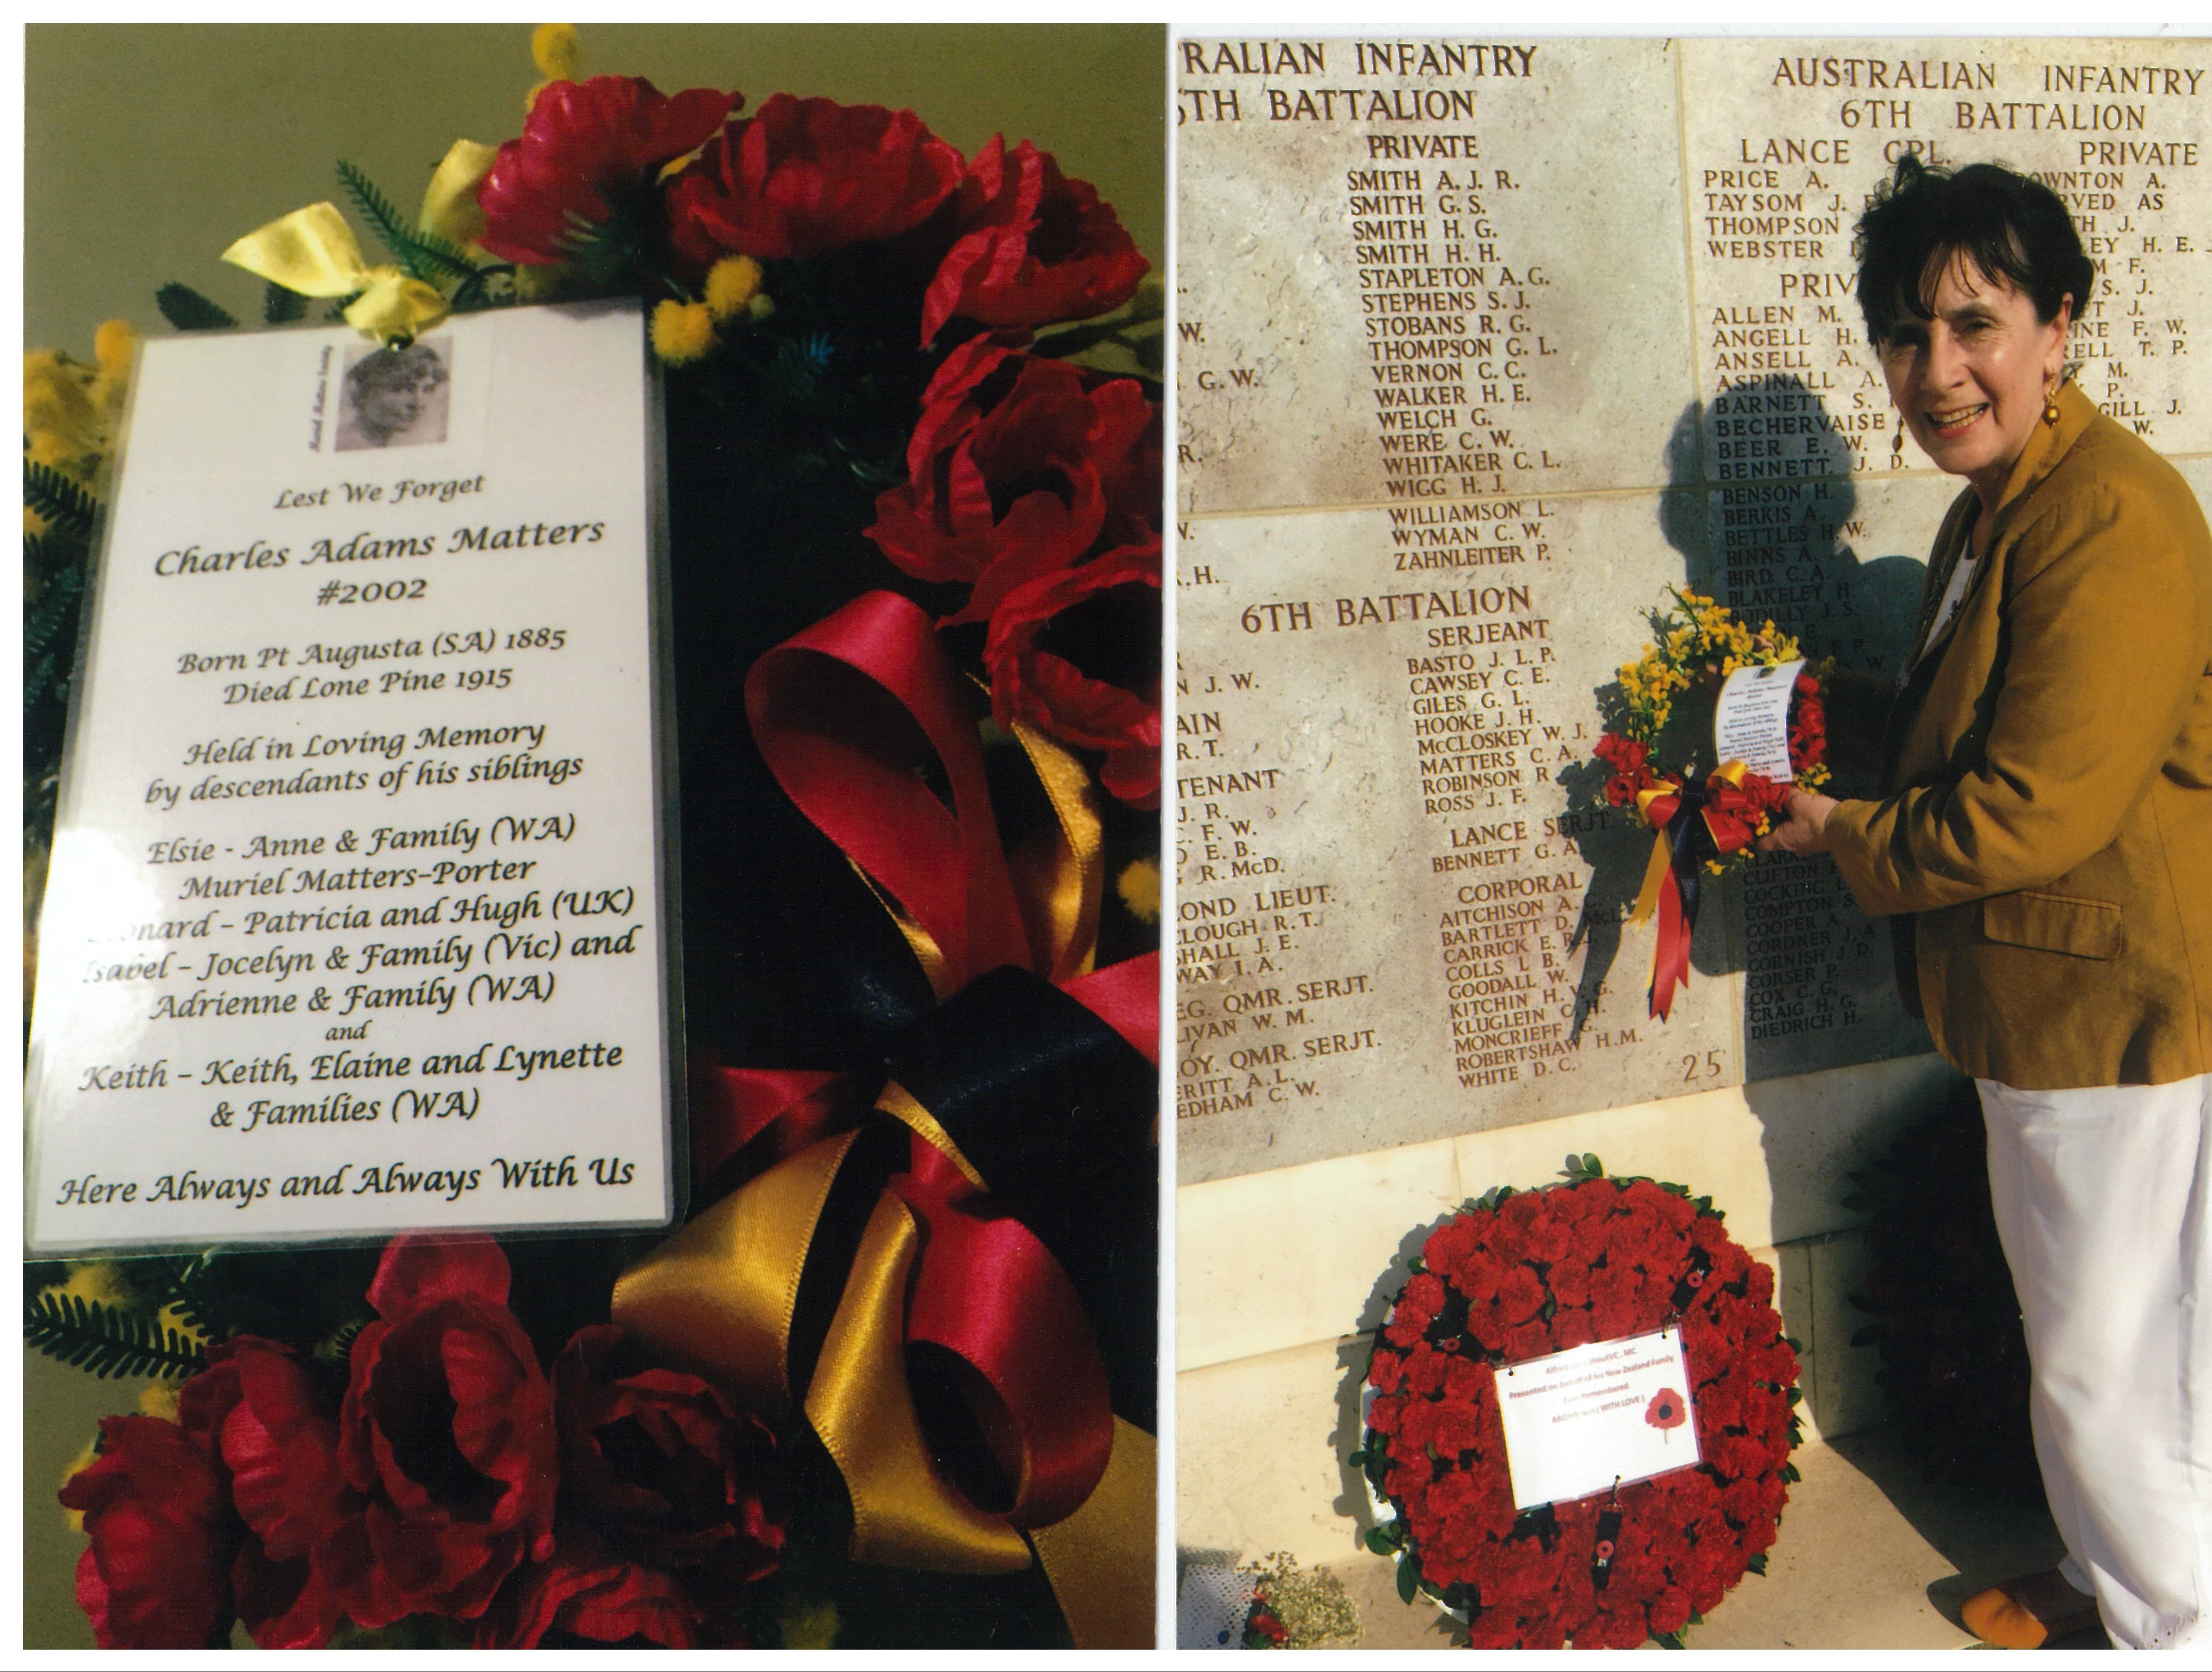 Lest We Forget
Charles Adams Matters
#2002
Born Pt Augusta (SA) 1885
Died Lone Pine 1915
Held in Loving Memory
by descendants of his siblings
Elsie - Anne & Family (WA)
Muriel Matters-Porter
– Patricia and Hugh (UK)
Isabel – Jocelyn & Family (Vic) and
Adrienne & Family (WA)
and
Keith – Keith, Elaine and Lynette
& Families (WA)
Here Always and Always With Us
RALIAN INFANTRY
5TH BATTALION
PRIVATE
SMITH A. J. R.
SMITH G. S.
SMITH H. G.
SMITH H. H.
STAPLETON A. G.
STEPHENS S. J.
STOBANS R. G.
THOMPSON G. L.
VERNON C. C.
WALKER H. E.
WELCH G.
WERE C. W.
WHITAKER C. L.
WIGG H. J.
WILLIAMSON L.
WYMAN C. W.
ZAHNLEITER P.
W.
G. W.
R.
W.
H.
6TH BATTALION
J. W.
AIN
R. T.
TENANT
J. R.
F. W.
E. B.
R. McD.
OND LIEUT.
CLOUGH R. T.
SHALL J. E.
WAY I. A.
EG. QMR. SERJT.
LIVAN W. M.
OY. QMR. SERJT.
ERITT A. L.
EDHAM C. W.
SERJEANT
BASTO J. L. P.
CAWSEY C. E.
GILES G. L.
HOOKE J. H.
McCLOSKEY W. J.
MATTERS C. A.
ROBINSON R.
ROSS J. F.
LANCE SERJT.
BENNETT G. A.
CORPORAL
AITCHISON A. C.
BARTLETT D. McL.
CARRICK E. R. J.
COLLS L B.
GOODALL W.
KITCHIN H. V. G.
KLUGLEIN C. H.
MONCRIEFF G.
ROBERTSHAW H. M.
WHITE D. C.
25
AUSTRALIAN INFANTRY
6TH BATTALION
LANCE CPL.
PRICE A.
TAYSOM J.
THOMPSON
WEBSTER
PRIV
ALLEN M.
ANGELL H.
ANSELL A.
ASPINALL A.
BARNETT S.
BECHERVAISE
BEER E. W.
BENNETT J. D.
BENSON H.
BERKIS A.
BETTLES H. W.
BINNS A.
BIRD C. A.
BLAKELEY H.
BODILLY J. S.
CLIFTON
COCKING L.
COMPTON S.
COOPER A.
CORDNER J. A
CORNISH J. D.
CORSER P.
COX C. G.
CRAIG H. G.
DIEDRICH H.
PRIVATE
OWNTON A.
RVED AS
TH J.
LEY H. E. J
M F.
S. J.
T J.
INE F. W.
RELL T. P.
M.
P.
GILL J.
W.
Shout VC, MC
Presented on behalf of his New Zealand Family
Remembered
( WITH LOVE )